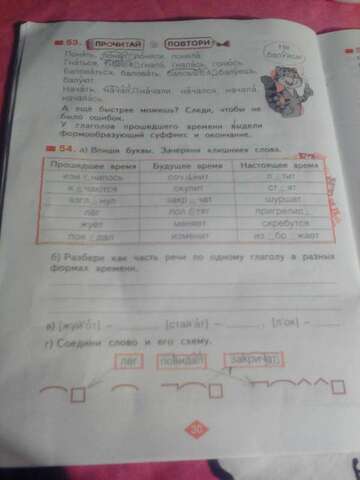 53. ПРОЧИТАЙ ПОВТОРИ
Не балуйся!
Понять, понял, поняли, поняла.
Гнаться, гнала, гналась, гонюсь.
Баловаться, баловать, балуешь,
балуют.
Начать, начал, начали начался, начала,
началась.
А ещё быстрее можешь? Следи, чтобы не
было ошибок.
У глаголов прошедшего времени выдели
формообразующий суффикс и окончание.
54. а) Впиши буквы. Зачеркни «лишние» слова.
Прошедшее время Будущее время Настоящее время
изм _ нилось соч _ нит л _ тит
к _ чаются окупит ст _ ят
взгл _ нул закр _ чат шуршат
лёг пол _ тят пригрелид _
жуёт меняет скребутся
пов _ дал изменит из _ бр _ жает
б) Разбери как часть речи по одному глаголу в разных
формах времени.
в) [жуй'от] – , [стай'ат] – , [л'ок] –
г) Соедини слово и его схему.
лёг повидал закричат
30